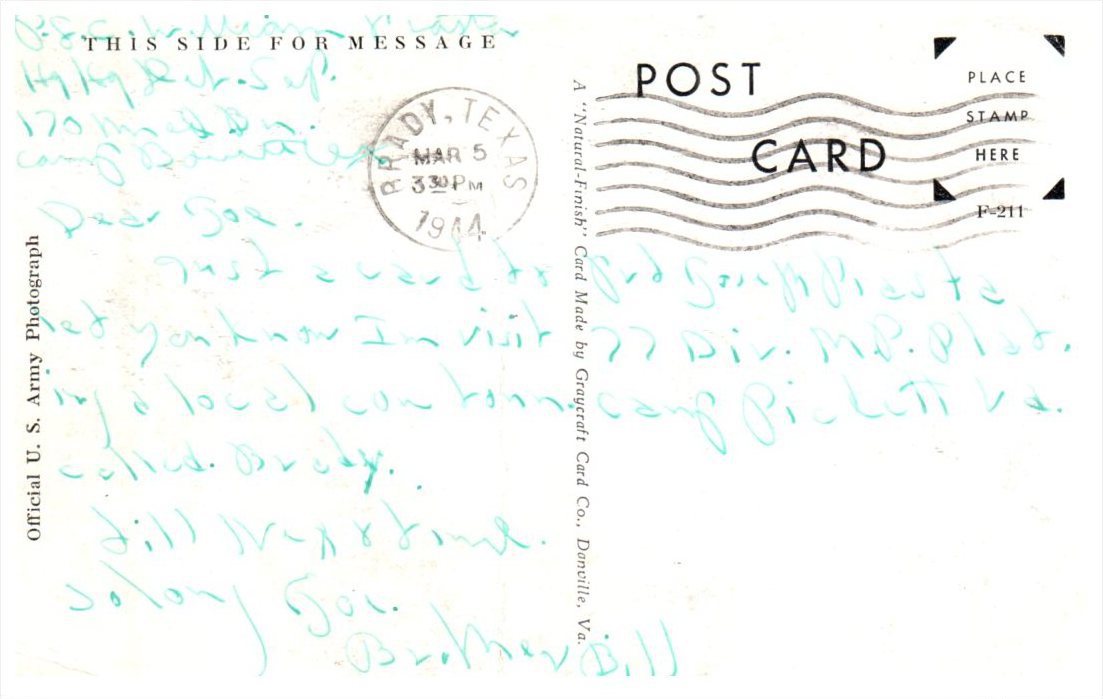 P.F.C. William Piasta
THIS SIDE FOR MESSAGE
Hq Hq Det. Sep.
170 Med Bn.
Camp Bowie Tex
Dear Joe.
Just a card to
let you know I'm visit
ing a local cow town.
called. Brady.
till next time.
So long Joe.
Brother Bill
Official U. S. Army Photograph
BRADY, TEXAS
MAR 5
3 30 PM
1944
A "Natural-Finish" Card Made by Graycraft Card Co., Danville, Va.
POST
CARD
PLACE
STAMP
HERE
F-211
Pvt Joseph Piasta
77 Div. M.P. Plat.
Camp Pickett Va.